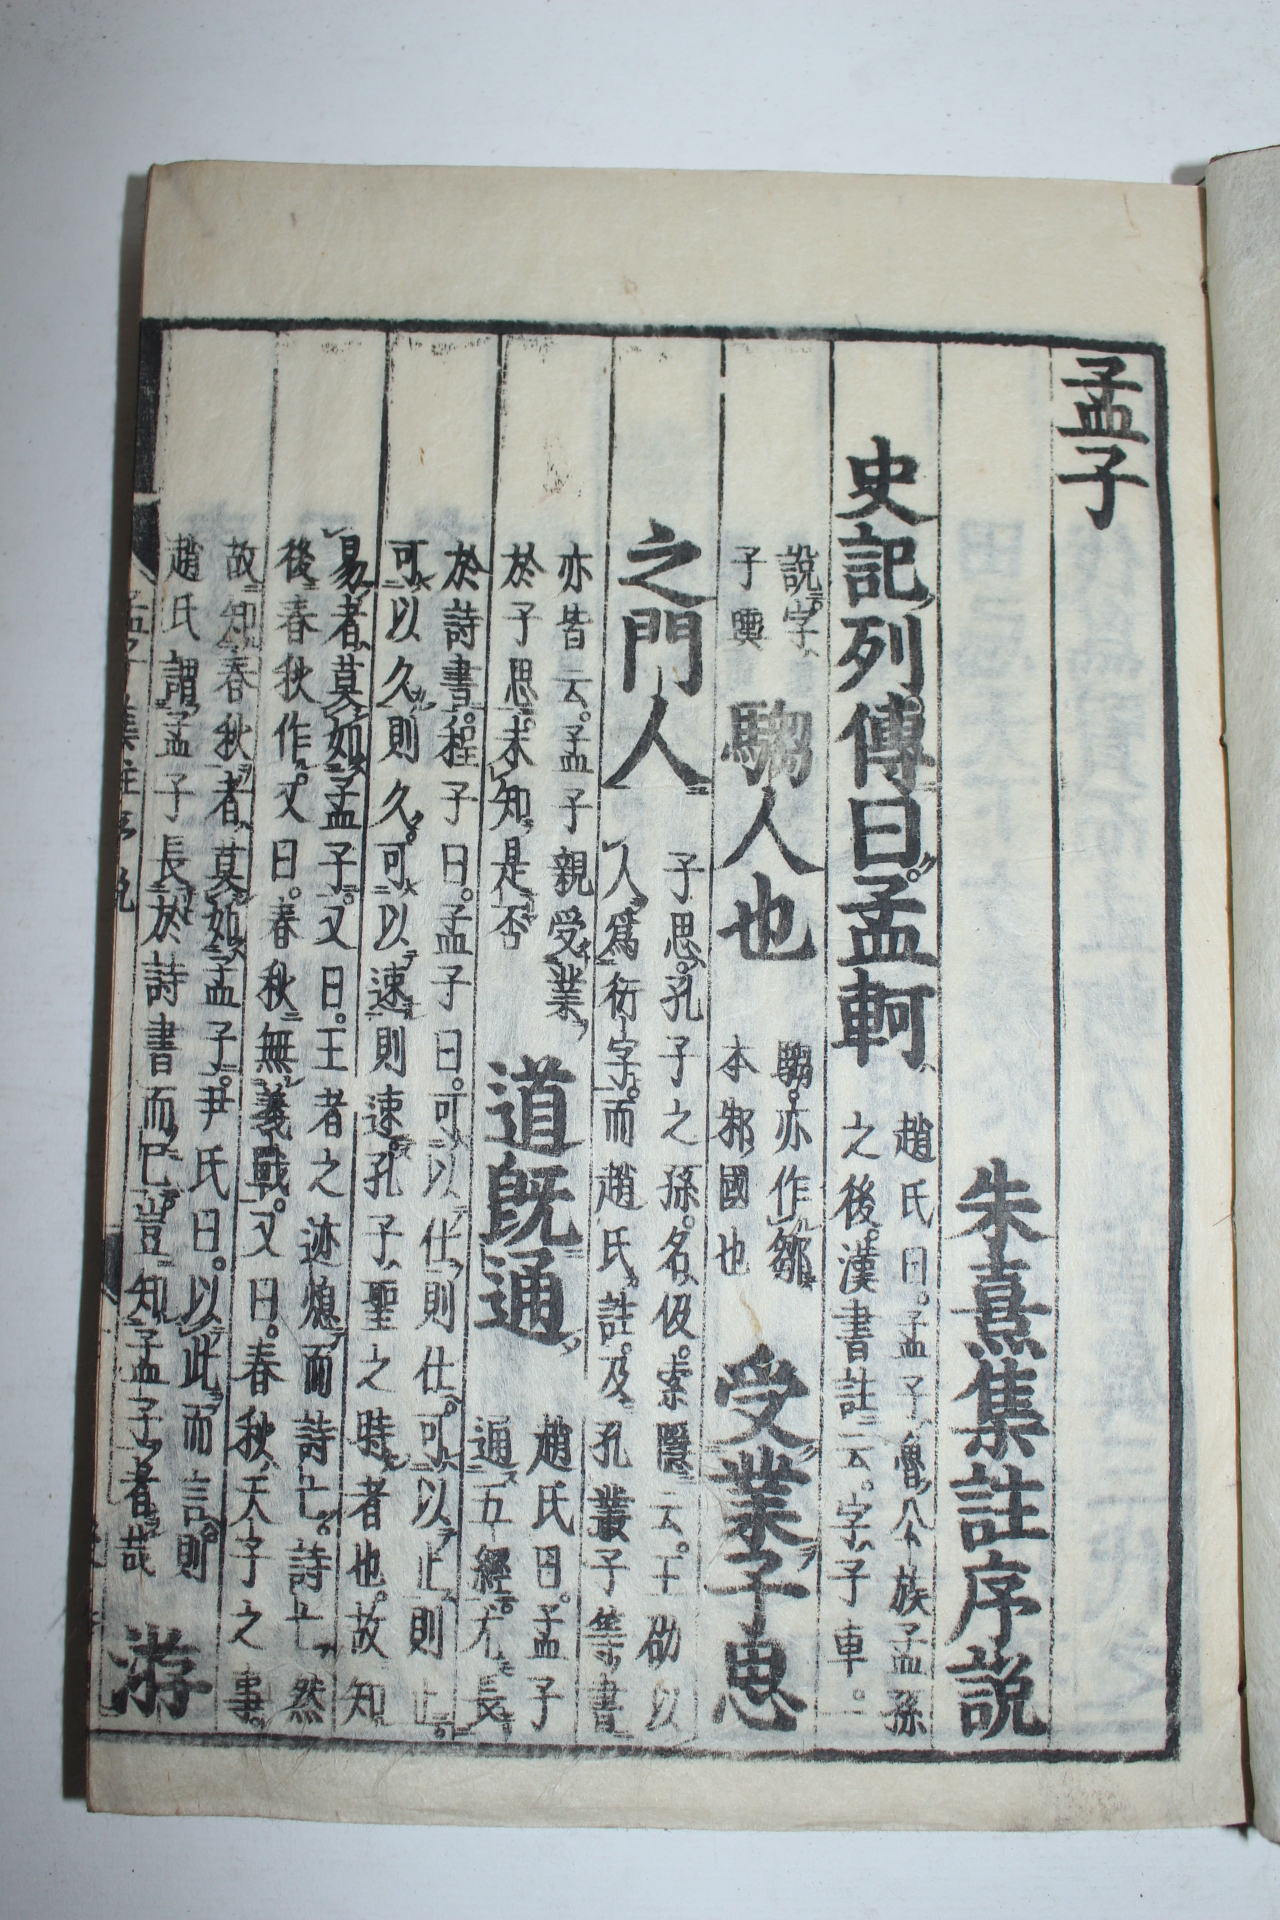 孟子
朱熹集註序說
史記列傳曰。孟軻
趙氏曰。孟子魯公族孟孫
之後。漢書註云。字子車。一
說字
子輿
騶人也
騶。亦作鄒
本邾國也
受業子思
之門人
子思。孔子之孫。名伋。索隱云。王劭以
人爲衍字。而趙氏註。及孔叢子等書
亦皆云。孟子親受業
於子思。未知是否
道旣通
趙氏曰。孟子
通五經。尤長
於詩書。程子曰。孟子曰。可以仕則仕。可以止則止。
可以久則久。可以速則速。孔子聖之時者也。故知
易者莫如孟子。又曰。王者之迹熄而詩亡。詩亡然
後春秋作。又曰。春秋無義戰。又曰。春秋天子之事。
故知春秋者莫如孟子。尹氏曰。以此而言。則
趙氏謂孟子長於詩書而已豈知孟子者哉
游
孟子集註序說